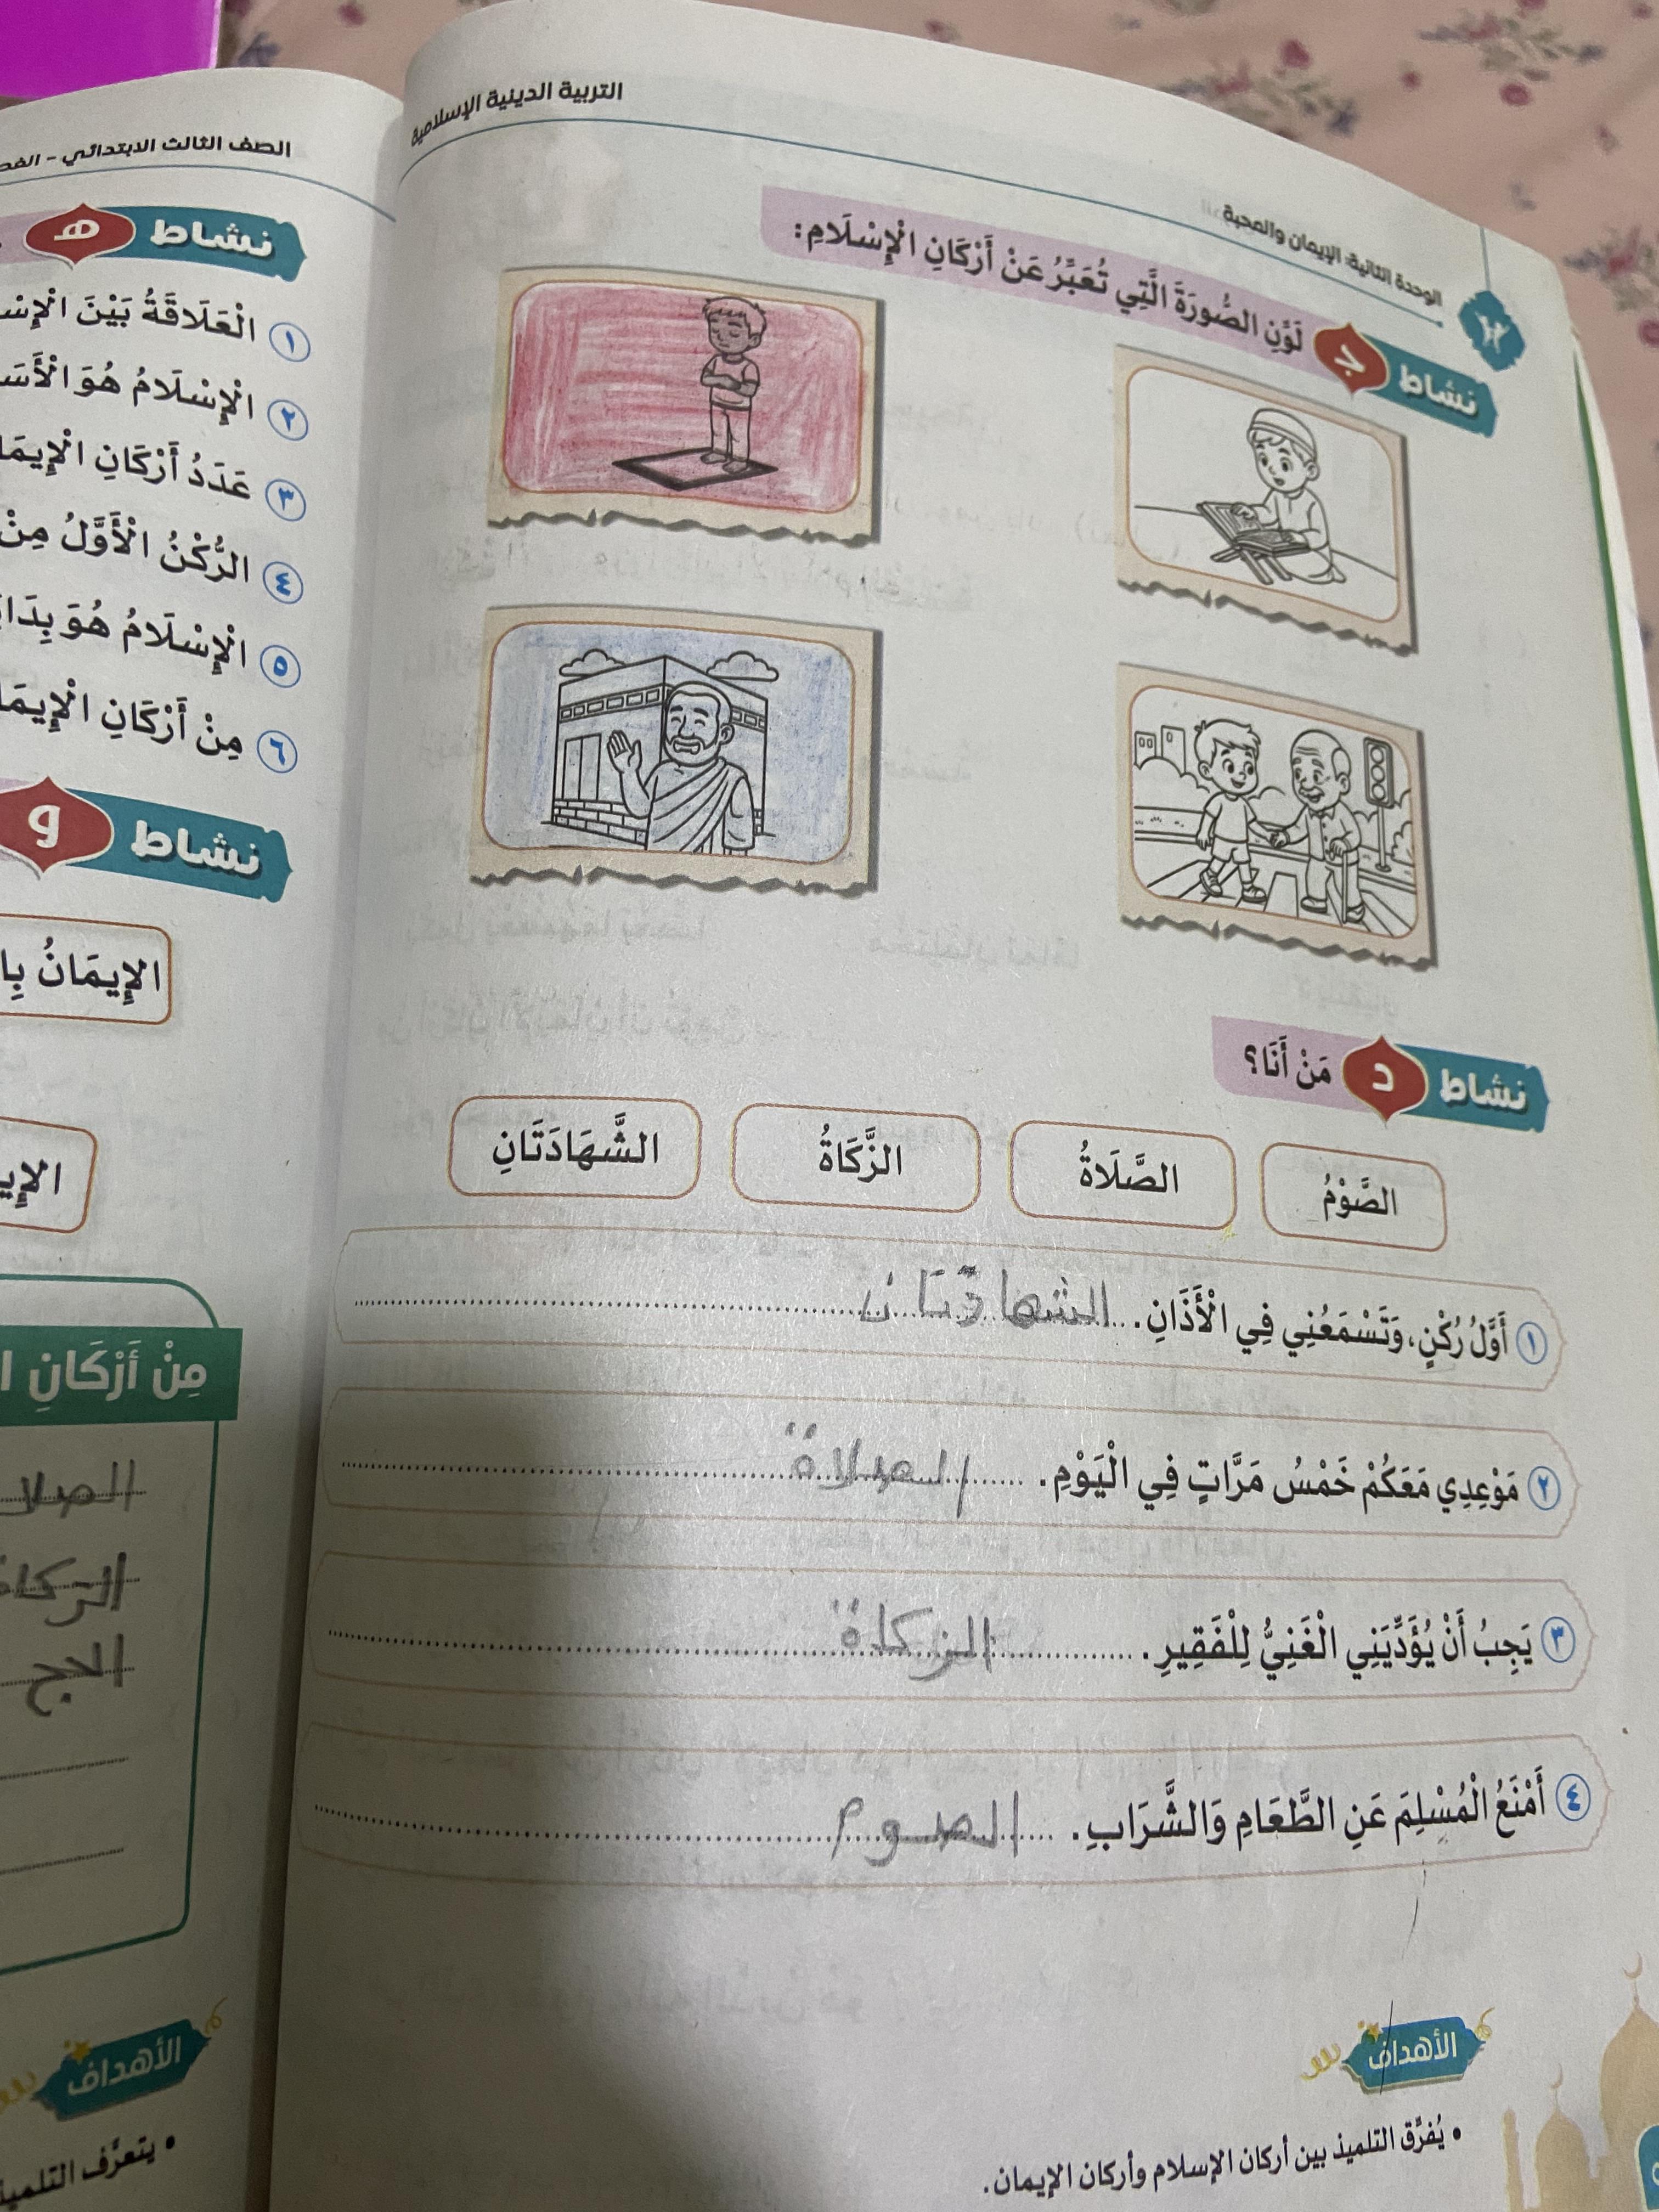 التربية الدينية الإسلامية
الوحدة الثانية: الإيمان والمحبة
نشاط ج لَوِّنِ الصُّورَةَ الَّتِي تُعَبِّرُ عَنْ أَرْكَانِ الْإِسْلَامِ:
نشاط د مَنْ أَنَا؟
الصَّوْمُ الصَّلَاةُ الزَّكَاةُ الشَّهَادَتَانِ
١ أَوَّلُ رُكْنٍ، وَتَسْمَعُنِي فِي الْأَذَانِ. الشهادتان
٢ مَوْعِدِي مَعَكُمْ خَمْسُ مَرَّاتٍ فِي الْيَوْمِ. الصلاة
٣ يَجِبُ أَنْ يُؤَدِّيَنِي الْغَنِيُّ لِلْفَقِيرِ. الزكاة
٤ أَمْنَعُ الْمُسْلِمَ عَنِ الطَّعَامِ وَالشَّرَابِ. الصوم
الأهداف
• يُفرِّق التلميذ بين أركان الإسلام وأركان الإيمان.
الصف الثالث الابتدائي -
نشاط هـ
١ الْعَلَاقَةُ بَيْنَ
٢ الْإِسْلَامُ هُوَ
٣ عَدَدُ أَرْكَانِ
٤ الرُّكْنُ الْأَوَّلُ مِنْ
٥ الْإِسْلَامُ هُوَ
٦ مِنْ أَرْكَانِ
نشاط و
الإِيمَانُ
مِنْ أَرْكَانِ
الحج
الأهداف
• يتعرَّف